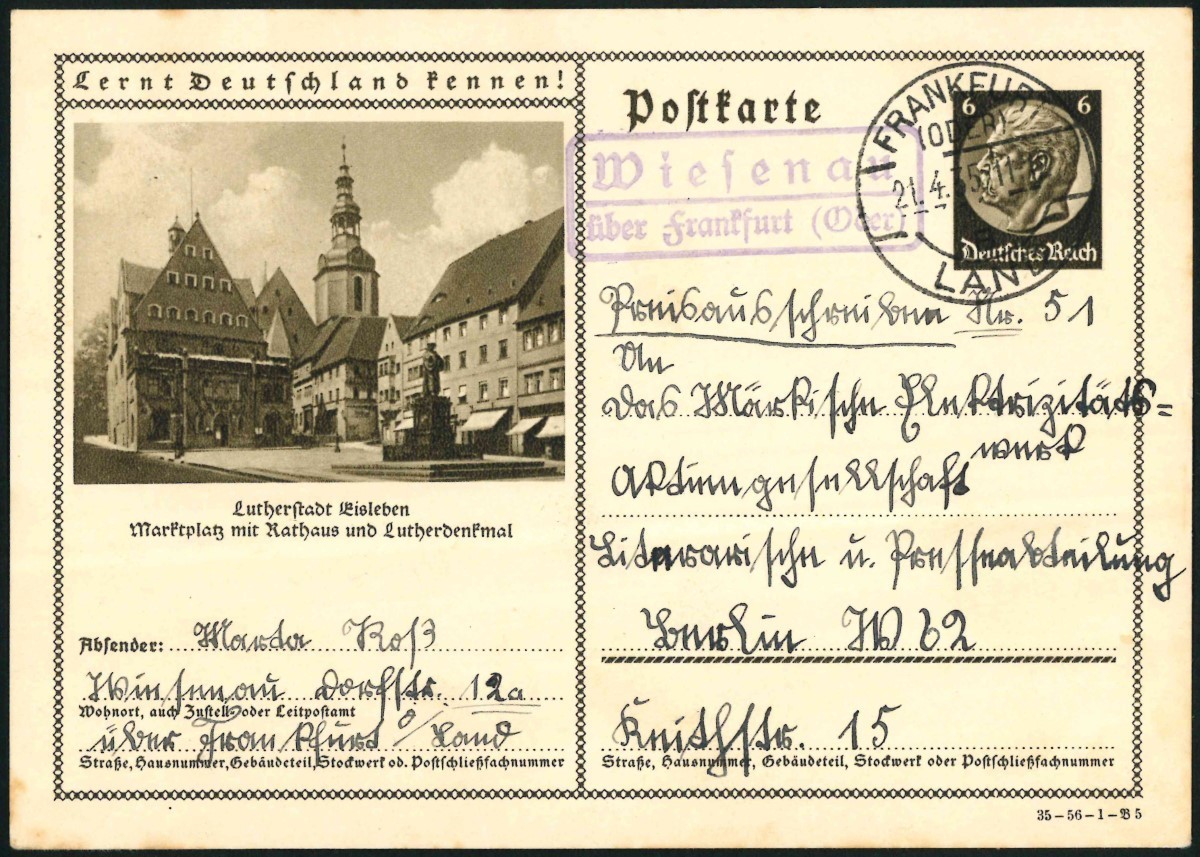 Lernt Deutschland kennen!
Lutherstadt Eisleben
Marktplatz mit Rathaus und Lutherdenkmal
Absender: Marta Koß
Wiesenau Dorfstr. 12a
Wohnort, auch Zustell- oder Leitpostamt
über Frankfurt o/ Land
Straße, Hausnummer, Gebäudeteil, Stockwerk od. Postschließfachnummer
Postkarte
Wiesenau
über Frankfurt (Oder)
FRANKFURT
(ODER)
21.4.35.11-
LAND
6 6
Deutsches Reich
Preisausschreiben Nr. 51
An
das Märkische Elektrizitäts=
werk
Aktiengesellschaft
Literarische u. Presseabteilung
Berlin W 62
Keithstr. 15
Straße, Hausnummer, Gebäudeteil, Stockwerk oder Postschließfachnummer
35-56-1-B5